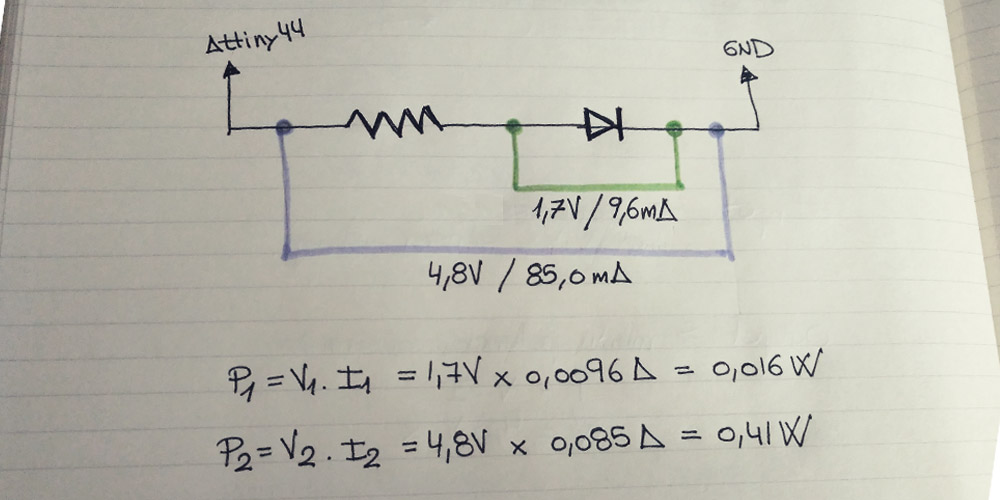 Attiny44
GND
1,7V / 9,6mA
4,8V / 85,0mA
P1 = V1 . I1 = 1,7V x 0,0096A = 0,016W
P2 = V2 . I2 = 4,8V x 0,085A = 0,41W